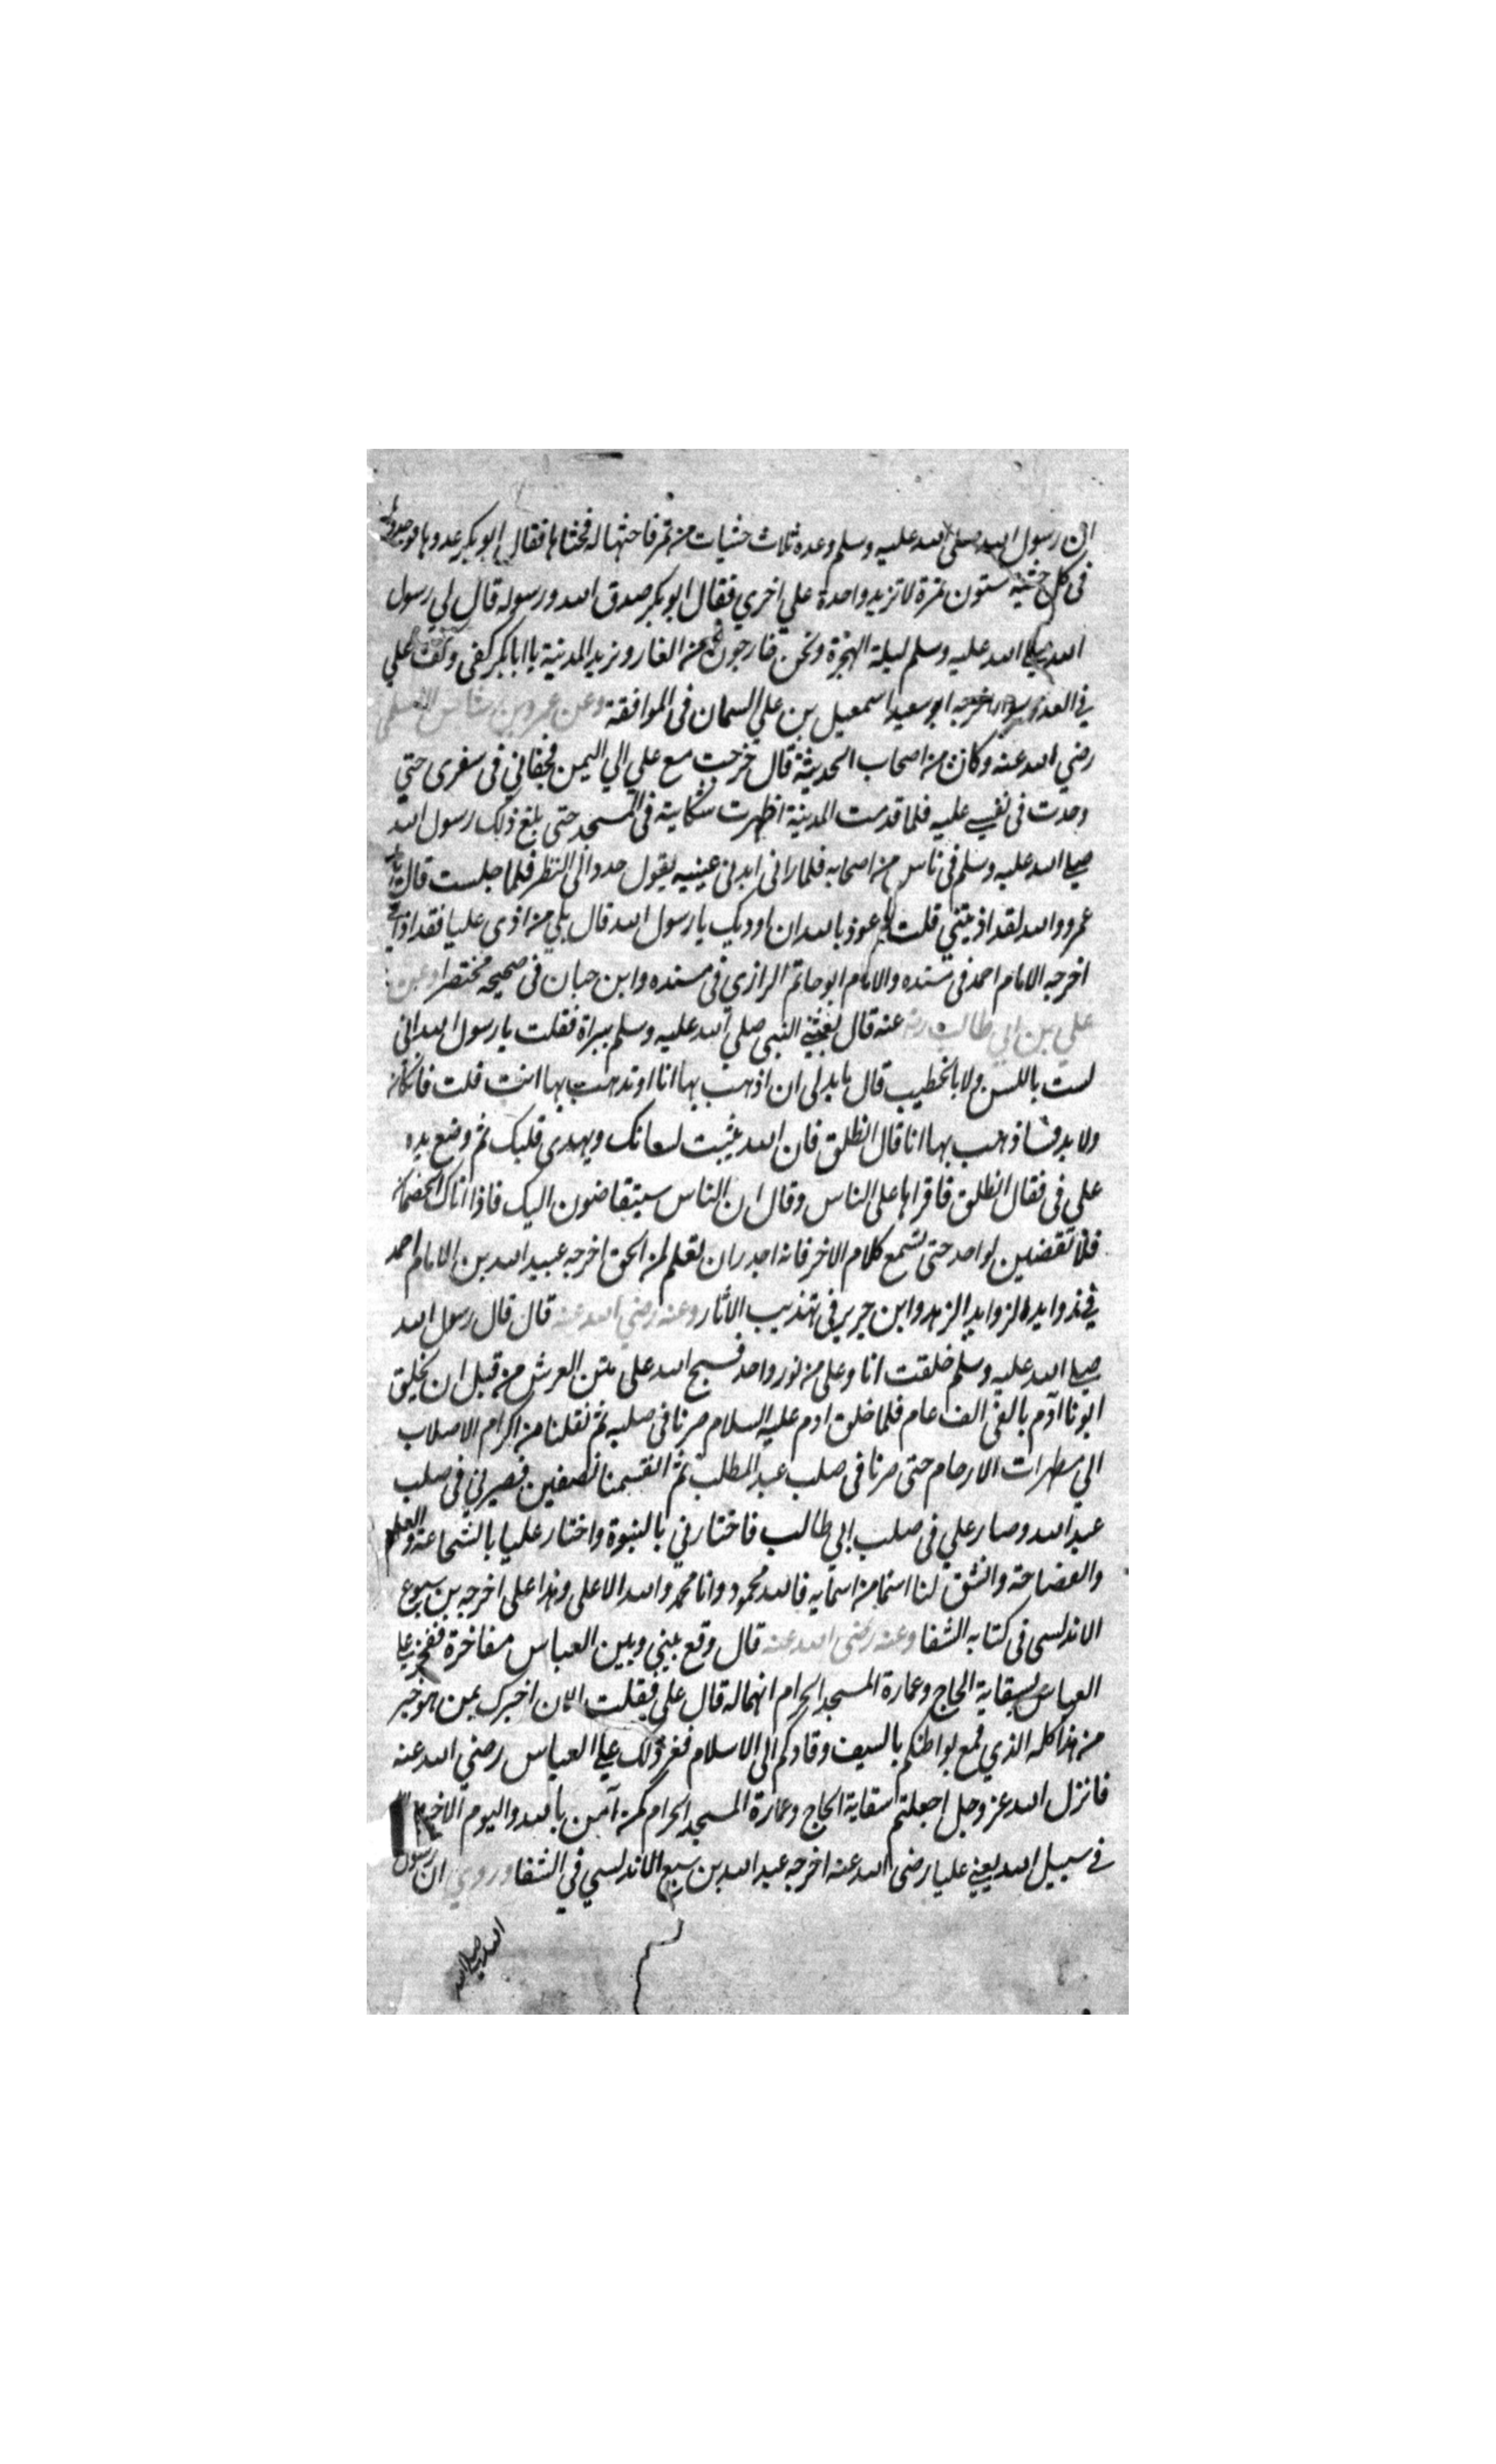 ان رسول الله صلى الله عليه وسلم وعده ثلاث حثيات من تمر فاحثها له فحثاها فقال ابو بكر عدوها فوجدوا
في كل حثيه ستون تمرة لا تزيد واحدة علي اخري فقال ابو بكر صدق الله ورسوله قال لي رسول
الله صلي الله عليه وسلم ليلة الهجرة ونحن خارجون من الغار ونريد المدينة يا ابا بكر كفى وكف علي
في العدد سوا اخرجه ابو سعيد اسمعيل بن علي السمان فى الموافقة وعن عمرو بن شاس الاسلمي
رضي الله عنه وكان من اصحاب الحديثة قال خرجت مع علي الي اليمن فجفاني فى سفرى حتي
وجدت فى نفسي عليه فلما قدمت المدينة اظهرت شكايته فى المسجد حتى بلغ ذلك رسول الله
صلي الله عليه وسلم فى ناس من اصحابه فلما رانى ابدنى عينيه يقول حدد الى النظر فلما جلست قال يا
عمرو والله لقد اذيتني قلت اعوذ بالله ان اوديك يا رسول الله قال بلي من اذى عليا فقد اذاني
اخرجه الامام احمد فى مسنده والامام ابو حاتم الرازي فى مسنده وابن حبان فى صحيحه مختصرا وعن
علي بن ابي طالب رضي عنه قال بعثني النبي صلي الله عليه وسلم ببراة فقلت يا رسول الله انى
لست باللسن ولا بالخطيب قال ما بد لى ان اذهب بها انا او تذهب بها انت قلت فان كان
ولا بد فساذهب بها انا قال انطلق فان الله يثبت لسانك ويهدى قلبك ثم وضع يده
على فى فقال انطلق فاقراها على الناس وقال ان الناس سيتقاضون اليك فاذا اتاك الخصمان
فلا تقضين لواحد حتى تسمع كلام الاخر فانه اجدر ان تعلم لمن الحق اخرجه عبيد الله بن الامام احمد
في زوايده لزوايد الزهد وابن جرير فى تهذيب الاثار وعنه رضي الله عنه قال قال رسول الله
صلي الله عليه وسلم خلقت انا وعلى من نور واحد فسبح الله على متن العرش من قبل ان يخلق
ابونا آدم بالفى الف عام فلما خلق ادم عليه السلام صرنا فى صلبه ثم نقلنا من اكرام الاصلاب
الي مطهرات الارحام حتى صرنا فى صلب عبد المطلب ثم انقسمنا نصفين فصيرني فى صلب
عبد الله وصار علي فى صلب ابي طالب فاختارني بالنبوة واختار عليا بالشجاعة والعلم
والفصاحة وانشق لنا اسما من اسمايه فالله محمود وانا محمد والله الاعلى وهذا على اخرجه بن سبوع
الاندلسى فى كتابه الشفا وعنه رضى الله عنه قال وقع بيني وبين العباس مفاخرة ففخر علي
العباس بسقاية الحاج وعمارة المسجد الحرام انهما له قال علي فقلت الان اخبرك بمن هو خير
من هذا كله الذي قمع بواطنكم بالسيف وقادكم الى الاسلام فعز ذلك علي العباس رضي الله عنه
فانزل الله عز وجل اجعلتم سقاية الحاج وعمارة المسجد الحرام كمن آمن بالله واليوم الاخر
في سبيل الله يعني عليا رضى الله عنه اخرجه عبد الله بن سبع الاندلسي في الشفا وروي ان رسول
الله صلي الله